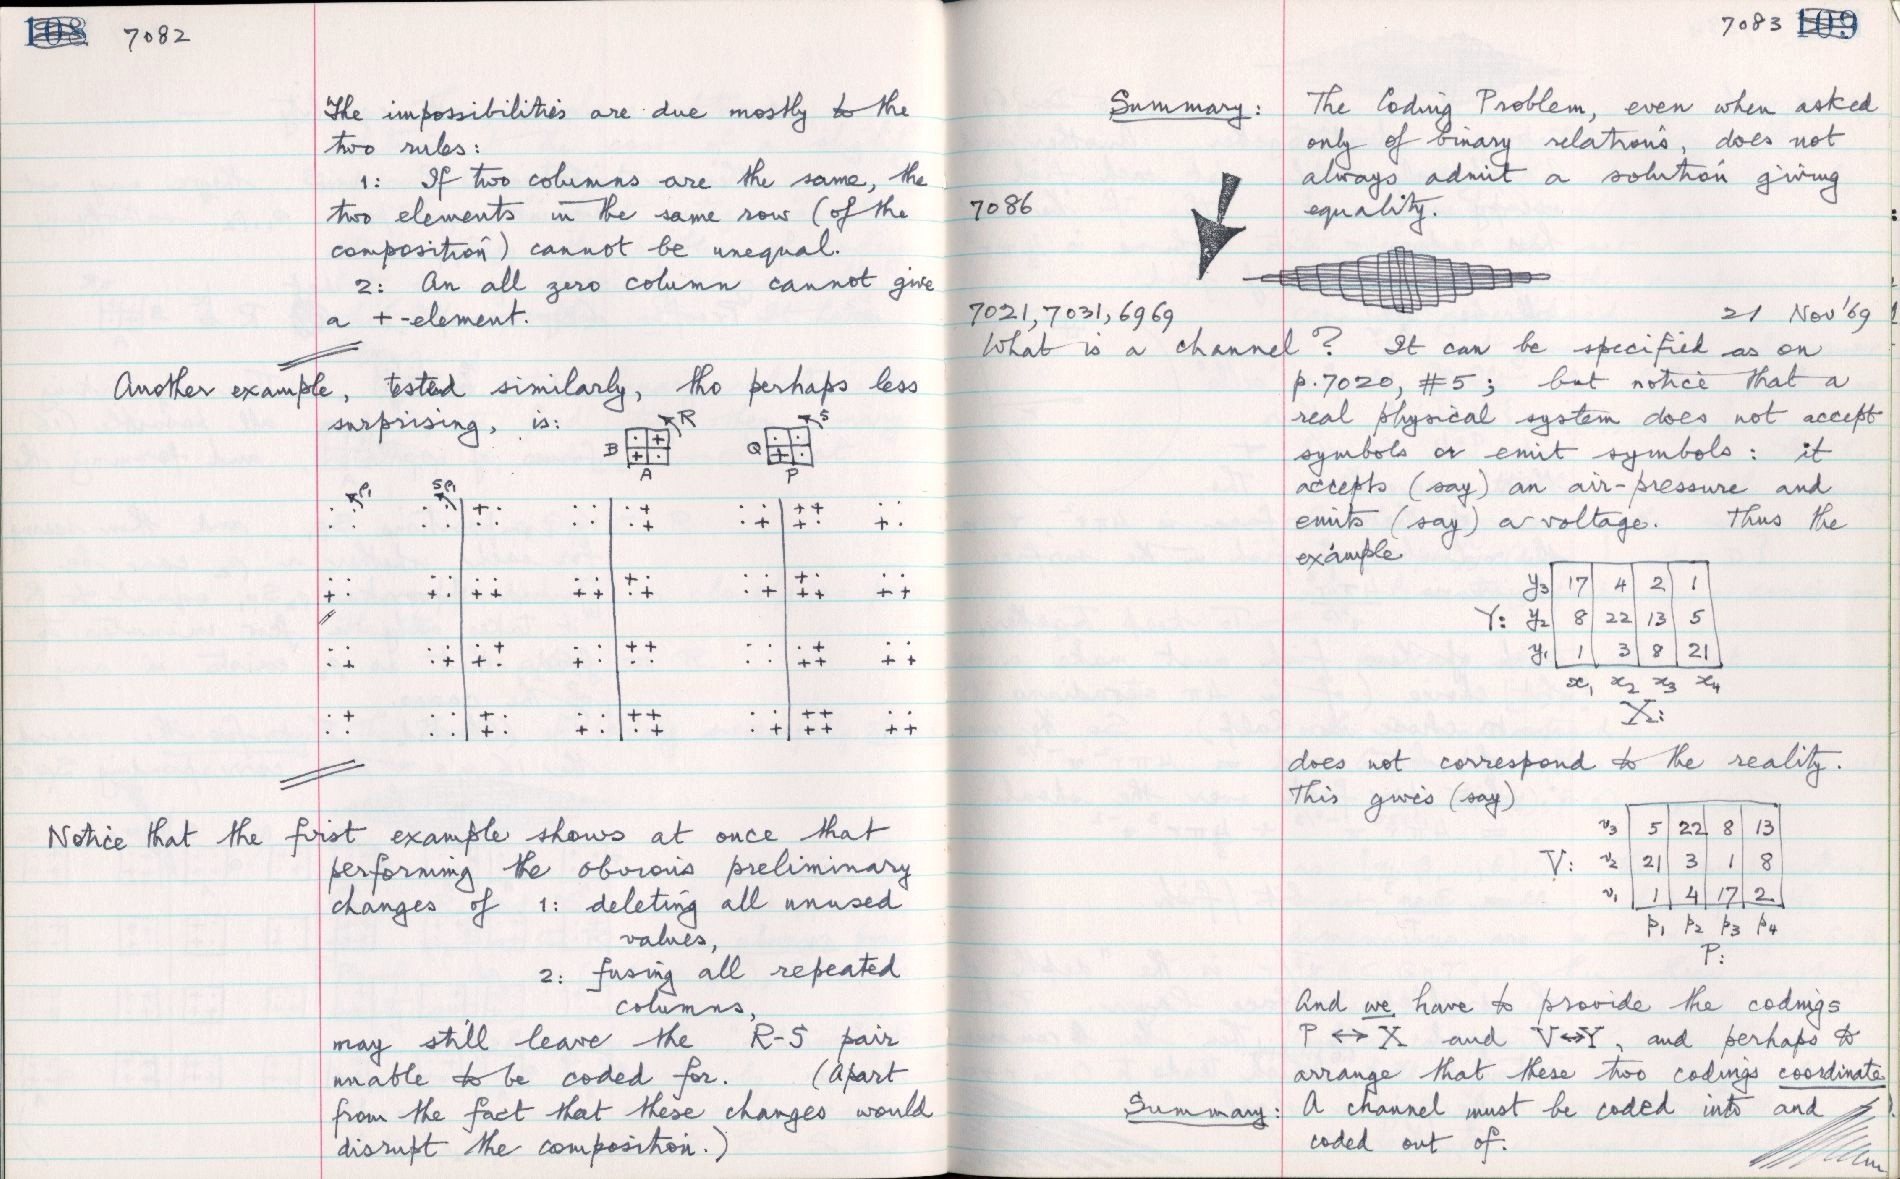 108 7082
The impossibilities are due mostly to the
two rules:
1: If two columns are the same, the
two elements in the same row (of the
composition) cannot be unequal.
2: An all zero column cannot give
a +-element.
Another example, tested similarly, tho perhaps less
surprising, is:
R S
B · + Q · ·
+ · + ·
A P
ρ₁ Sρ₁
· · · · + · · · · + · · + + · ·
· · · · · · · · · + · + + · + ·
· · · · · · · · + · · · + · · ·
+ · + · + + + + · + · + + + + +
· · · · · + · · + + · · · + · ·
· + · + + · + · · · · · + + + +
· + · · + · · · + + · · + + · ·
· · · · + · + · + + · + + + + +
Notice that the first example shows at once that
performing the obvious preliminary
changes of 1: deleting all unused
values,
2: fusing all repeated
columns,
may still leave the R-S pair
unable to be coded for. (Apart
from the fact that these changes would
disrupt the composition.)
7083 109
Summary: The Coding Problem, even when asked
only of binary relations, does not
always admit a solution giving
7086 equality.
7021, 7031, 6969 21 Nov '69
What is a channel? It can be specified as on
p.7020, #5; but notice that a
real physical system does not accept
symbols or emit symbols: it
accepts (say) an air-pressure and
emits (say) a voltage. Thus the
example
y₃ 17 4 2 1
Y: y₂ 8 22 13 5
y₁ 1 3 8 21
x₁ x₂ x₃ x₄
X:
does not correspond to the reality.
This gives (say)
v₃ 5 22 8 13
V: v₂ 21 3 1 8
v₁ 1 4 17 2
p₁ p₂ p₃ p₄
P:
And we have to provide the codings
P ↔ X and V↔Y, and perhaps to
arrange that these two codings coordinate.
Summary: A channel must be coded into and
coded out of.